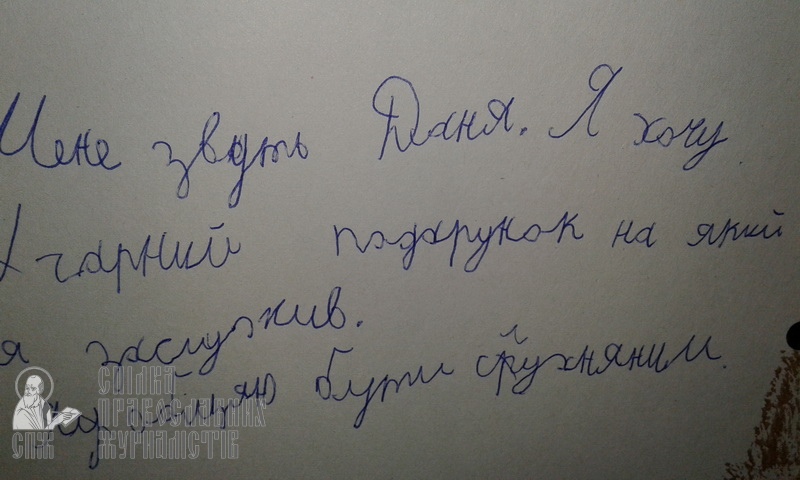 Мене звуть Даня. Я хочу
гарний подарунок на який
я заслужив.
бути слухняним.
СПІЛКА
ПРАВОСЛАВНИХ
ЖУРНАЛІСТІВ
СПЖ